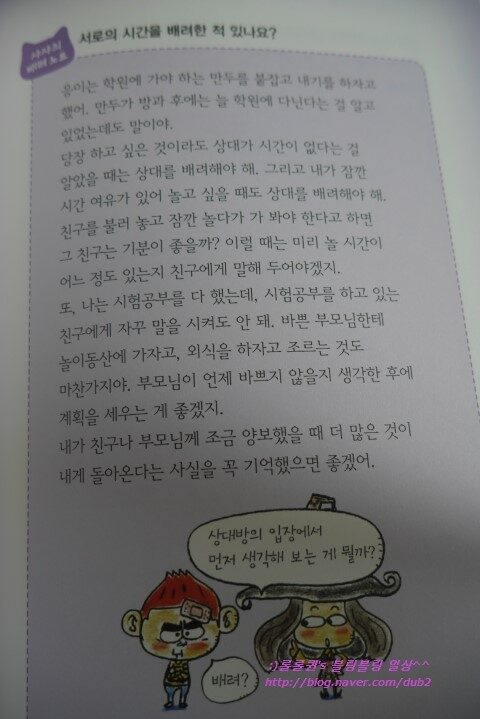 서로의 시간을 배려한 적 있나요?
차차의
배려 노트
웅이는 학원에 가야 하는 만두를 붙잡고 내기를 하자고
했어. 만두가 방과 후에는 늘 학원에 다닌다는 걸 알고
있었는데도 말이야.
당장 하고 싶은 것이라도 상대가 시간이 없다는 걸
알았을 때는 상대를 배려해야 해. 그리고 내가 잠깐
시간 여유가 있어 놀고 싶을 때도 상대를 배려해야 해.
친구를 불러 놓고 잠깐 놀다가 가 봐야 한다고 하면
그 친구는 기분이 좋을까? 이럴 때는 미리 놀 시간이
어느 정도 있는지 친구에게 말해 두어야겠지.
또, 나는 시험공부를 다 했는데, 시험공부를 하고 있는
친구에게 자꾸 말을 시켜도 안 돼. 바쁜 부모님한테
놀이동산에 가자고, 외식을 하자고 조르는 것도
마찬가지야. 부모님이 언제 바쁘지 않을지 생각한 후에
계획을 세우는 게 좋겠지.
내가 친구나 부모님께 조금 양보했을 때 더 많은 것이
내게 돌아온다는 사실을 꼭 기억했으면 좋겠어.
상대방의 입장에서
먼저 생각해 보는 게 뭘까?
배려?
:)롤롤퀸's 블링블링 일상^^
http://blog.naver.com/dub2